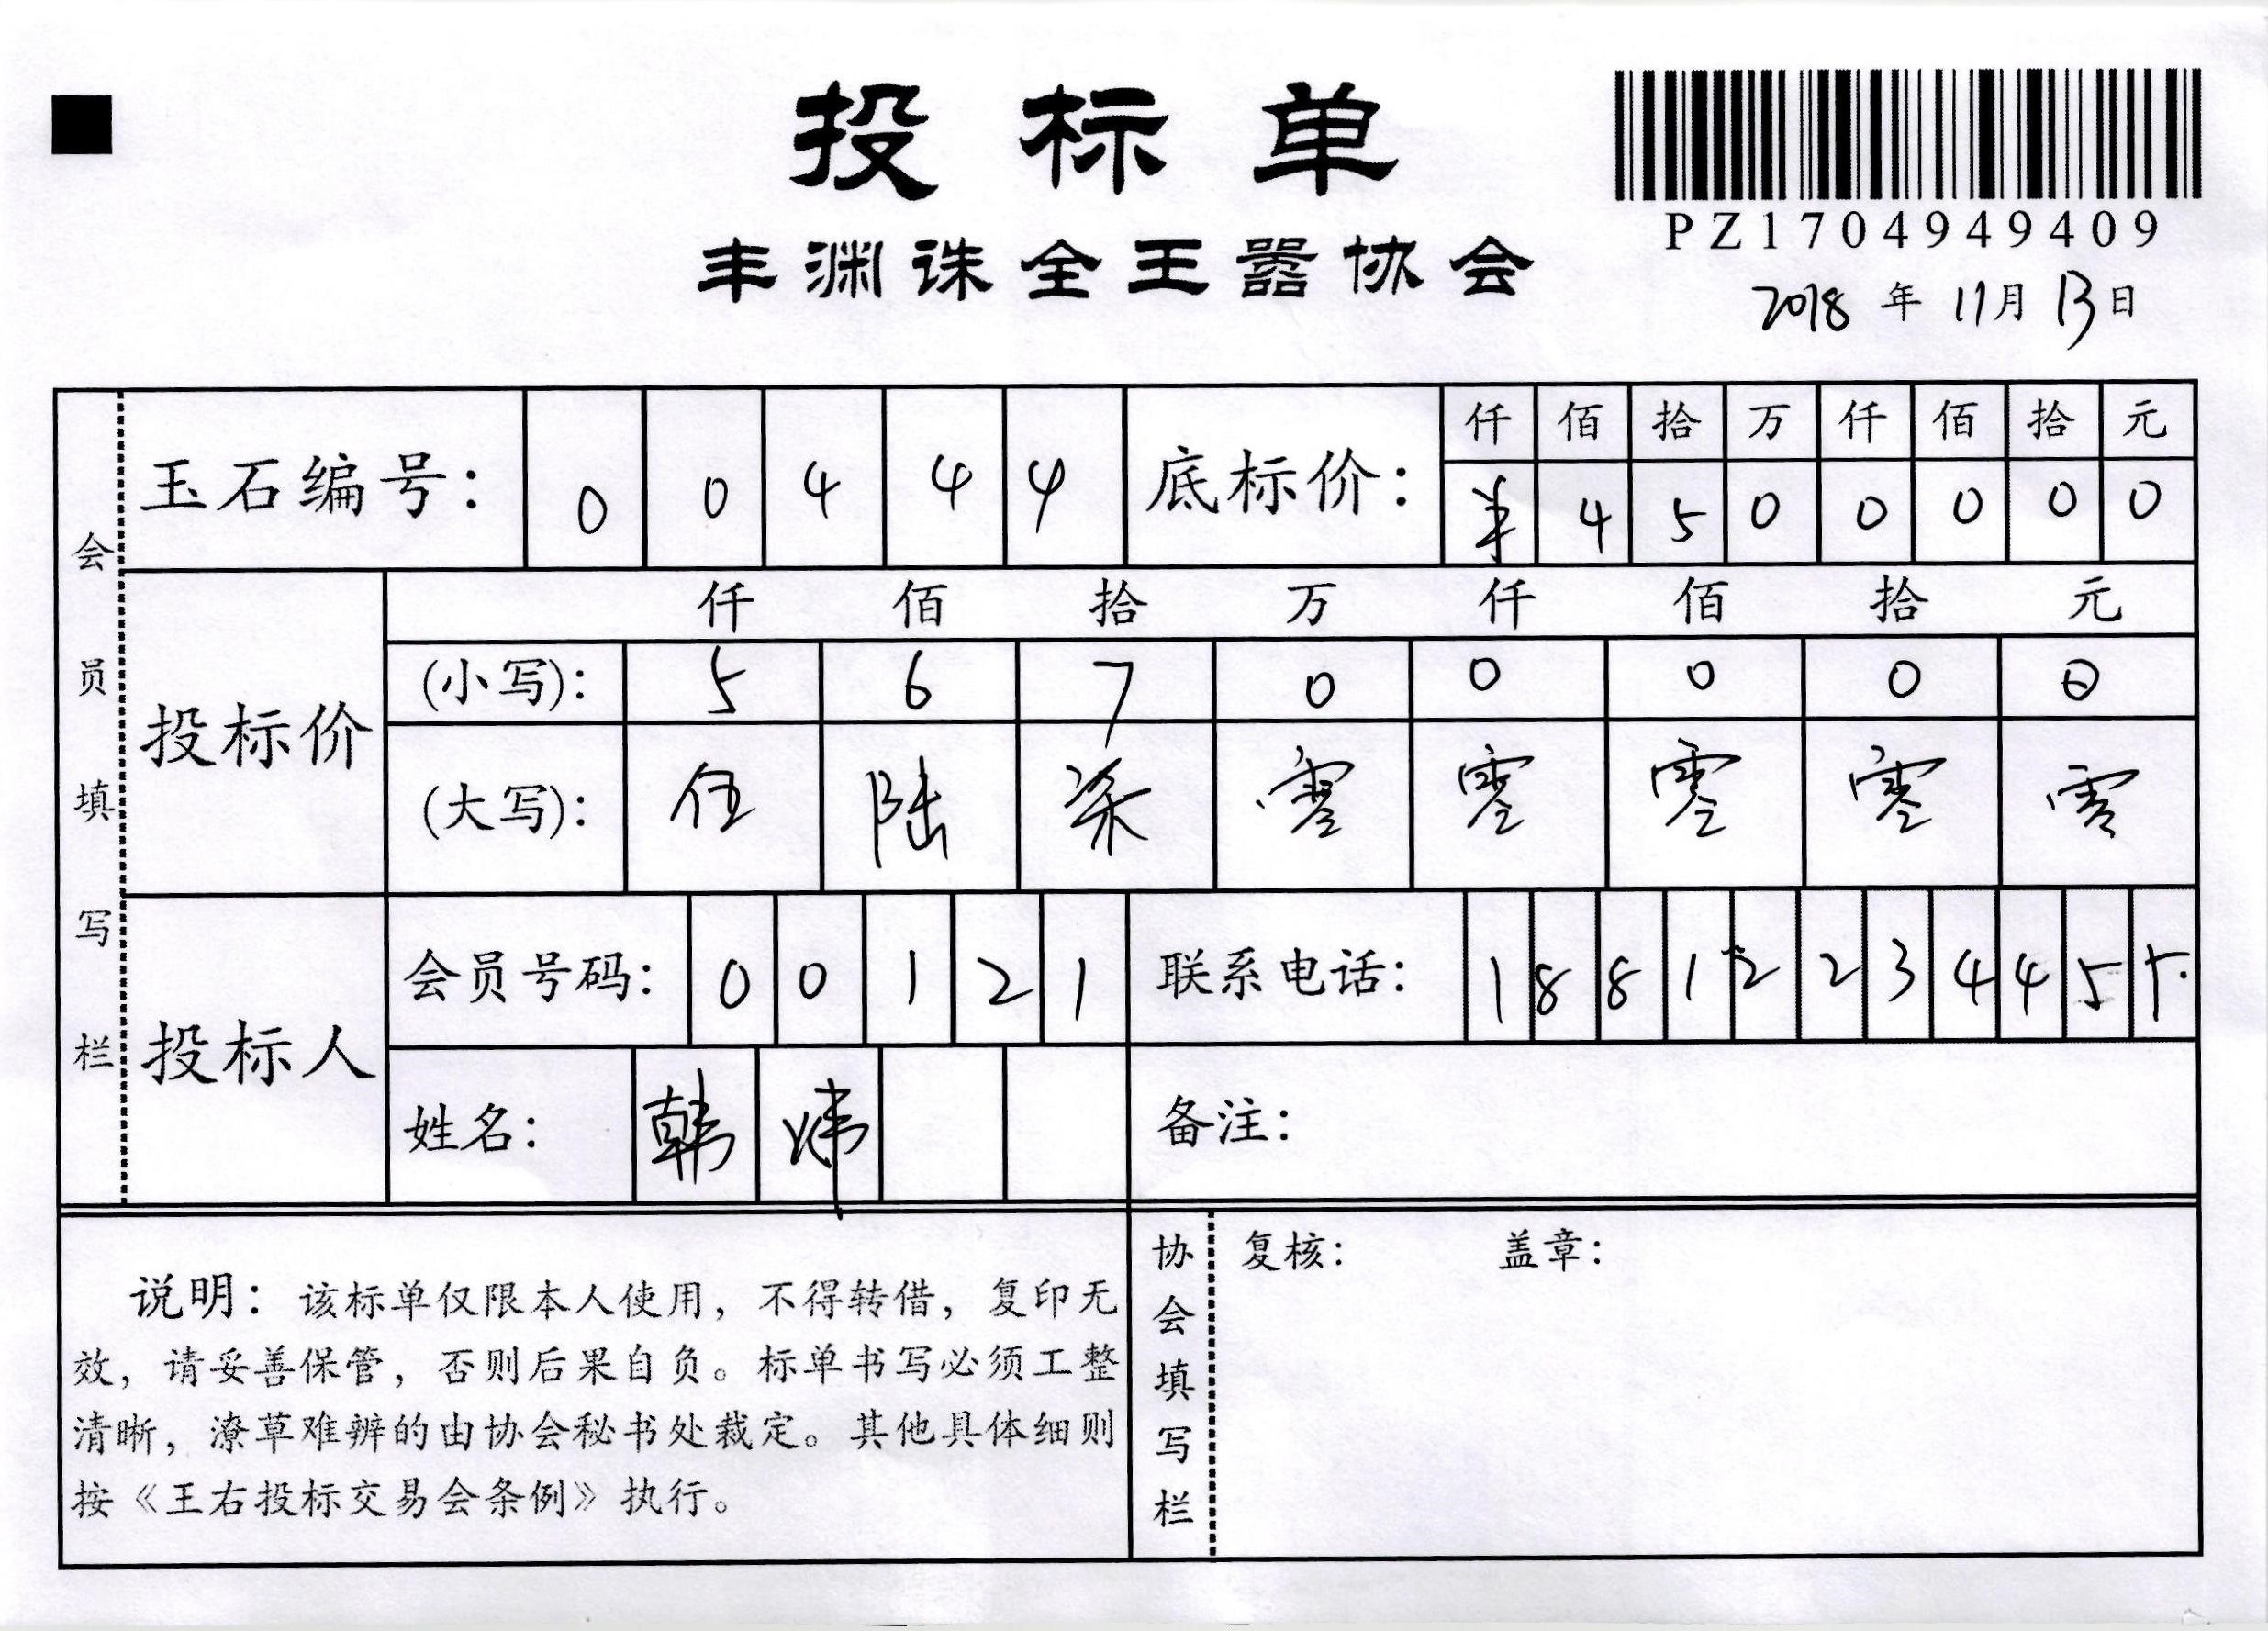 投标单
PZ1704949409
丰渊诛全王嚣协会
2018年11月13日
会员填写栏
玉石编号: 00444
底标价: 仟佰拾万仟佰拾元
¥4500000
投标价
仟佰拾万仟佰拾元
(小写): 56700000
(大写): 伍陆柒零零零零零
投标人
会员号码: 00121
联系电话: 18812234455
姓名: 韩炜
备注:
说明: 该标单仅限本人使用, 不得转借, 复印无
效, 请妥善保管, 否则后果自负。标单书写必须工整
清晰, 潦草难辨的由协会秘书处裁定。其他具体细则
按《王右投标交易会条例》执行。
协会填写栏
复核: 盖章: